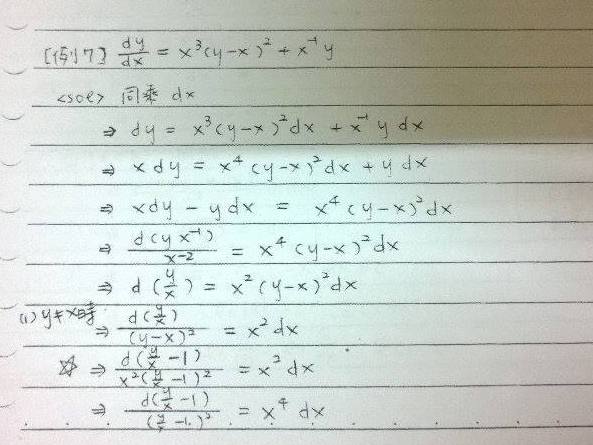 [例7] dy/dx = x³(y-x)² + x⁻¹y
<sol> 同乘 dx
⇒ dy = x³(y-x)²dx + x⁻¹y dx
⇒ x dy = x⁴(y-x)²dx + y dx
⇒ xdy - ydx = x⁴(y-x)²dx
⇒ d(yx⁻¹)/x⁻² = x⁴(y-x)²dx
⇒ d(y/x) = x²(y-x)²dx
(1) y≠x時 ⇒ d(y/x)/(y-x)² = x²dx
☆ ⇒ d(y/x -1)/x²(y/x -1)² = x²dx
⇒ d(y/x -1)/(y/x -1)² = x⁴ dx